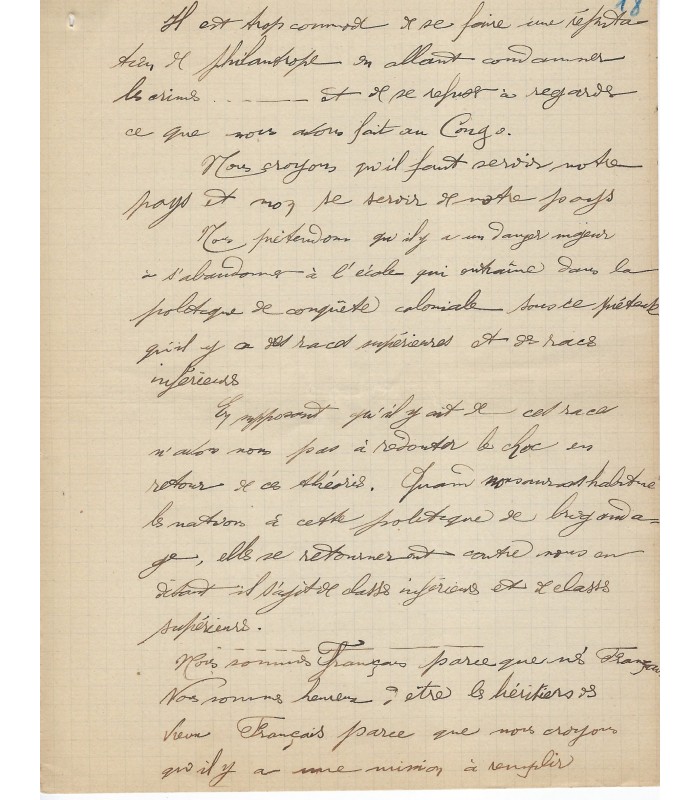 18
Il est trop commode de se faire une réputa
tion de philantrope en allant condamner
les crimes ........ et de se refuser à regarder
ce que nous avons fait au Congo.
Nous croyons qu'il faut servir notre
pays et non se servir de notre pays
Nous prétendons qu'il y a un danger majeur
à s'abandonner à l'école qui entraîne dans la
politique de conquête coloniale sous ce prétexte
qu'il y a des races supérieures et des races
inférieures
En supposant qu'il y ait de ces races
n'avons nous pas à redouter le choc en
retour de ces théories. Quand nous aurons habitué
les nations à cette politique de briganda-
ge, elles se retourneront contre nous en
disant il s'agit de classes inférieures et de classes
supérieures.
Nous sommes Français parce que nés Français
Nous sommes heureux d'etre les héritiers des
vieux Français parce que nous croyons
qu'il y a une mission à remplir